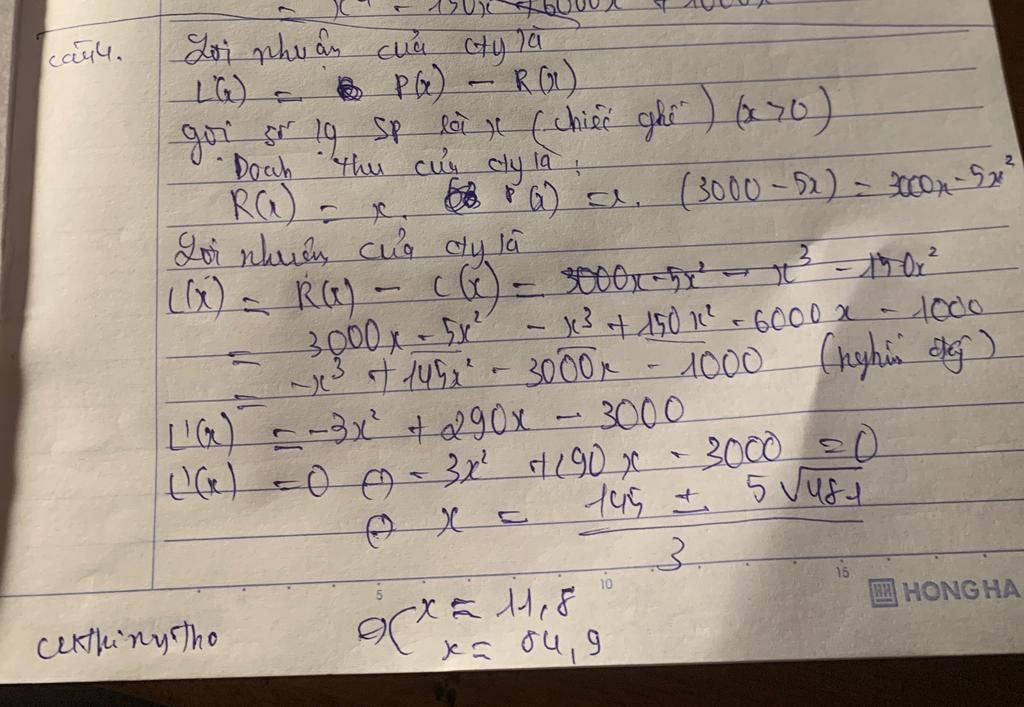 = x⁴ - 150x² + 6000x + 1000x
câu 4. Lợi nhuận của cty là
L(x) = P(x) - R(x)
gọi số lg SP là x (chiếc ghế) (x > 0)
Doanh thu của cty là:
R(x) = x. P(x) = x. (3000 - 5x) = 3000x - 5x²
Lợi nhuận của cty là
L(x) = R(x) - C(x) = 3000x - 5x² - x³ - 150x²
= 3000x - 5x² - x³ + 150x² - 6000x - 1000
= -x³ + 145x² - 3000x - 1000 (nghìn đg)
L'(x) = -3x² + 290x - 3000
L'(x) = 0 ⇔ -3x² + 290x - 3000 = 0
⇔ x = (145 ± 5√481)/3
5 10 15
HONG HA
x = 11,8
x = 84,9